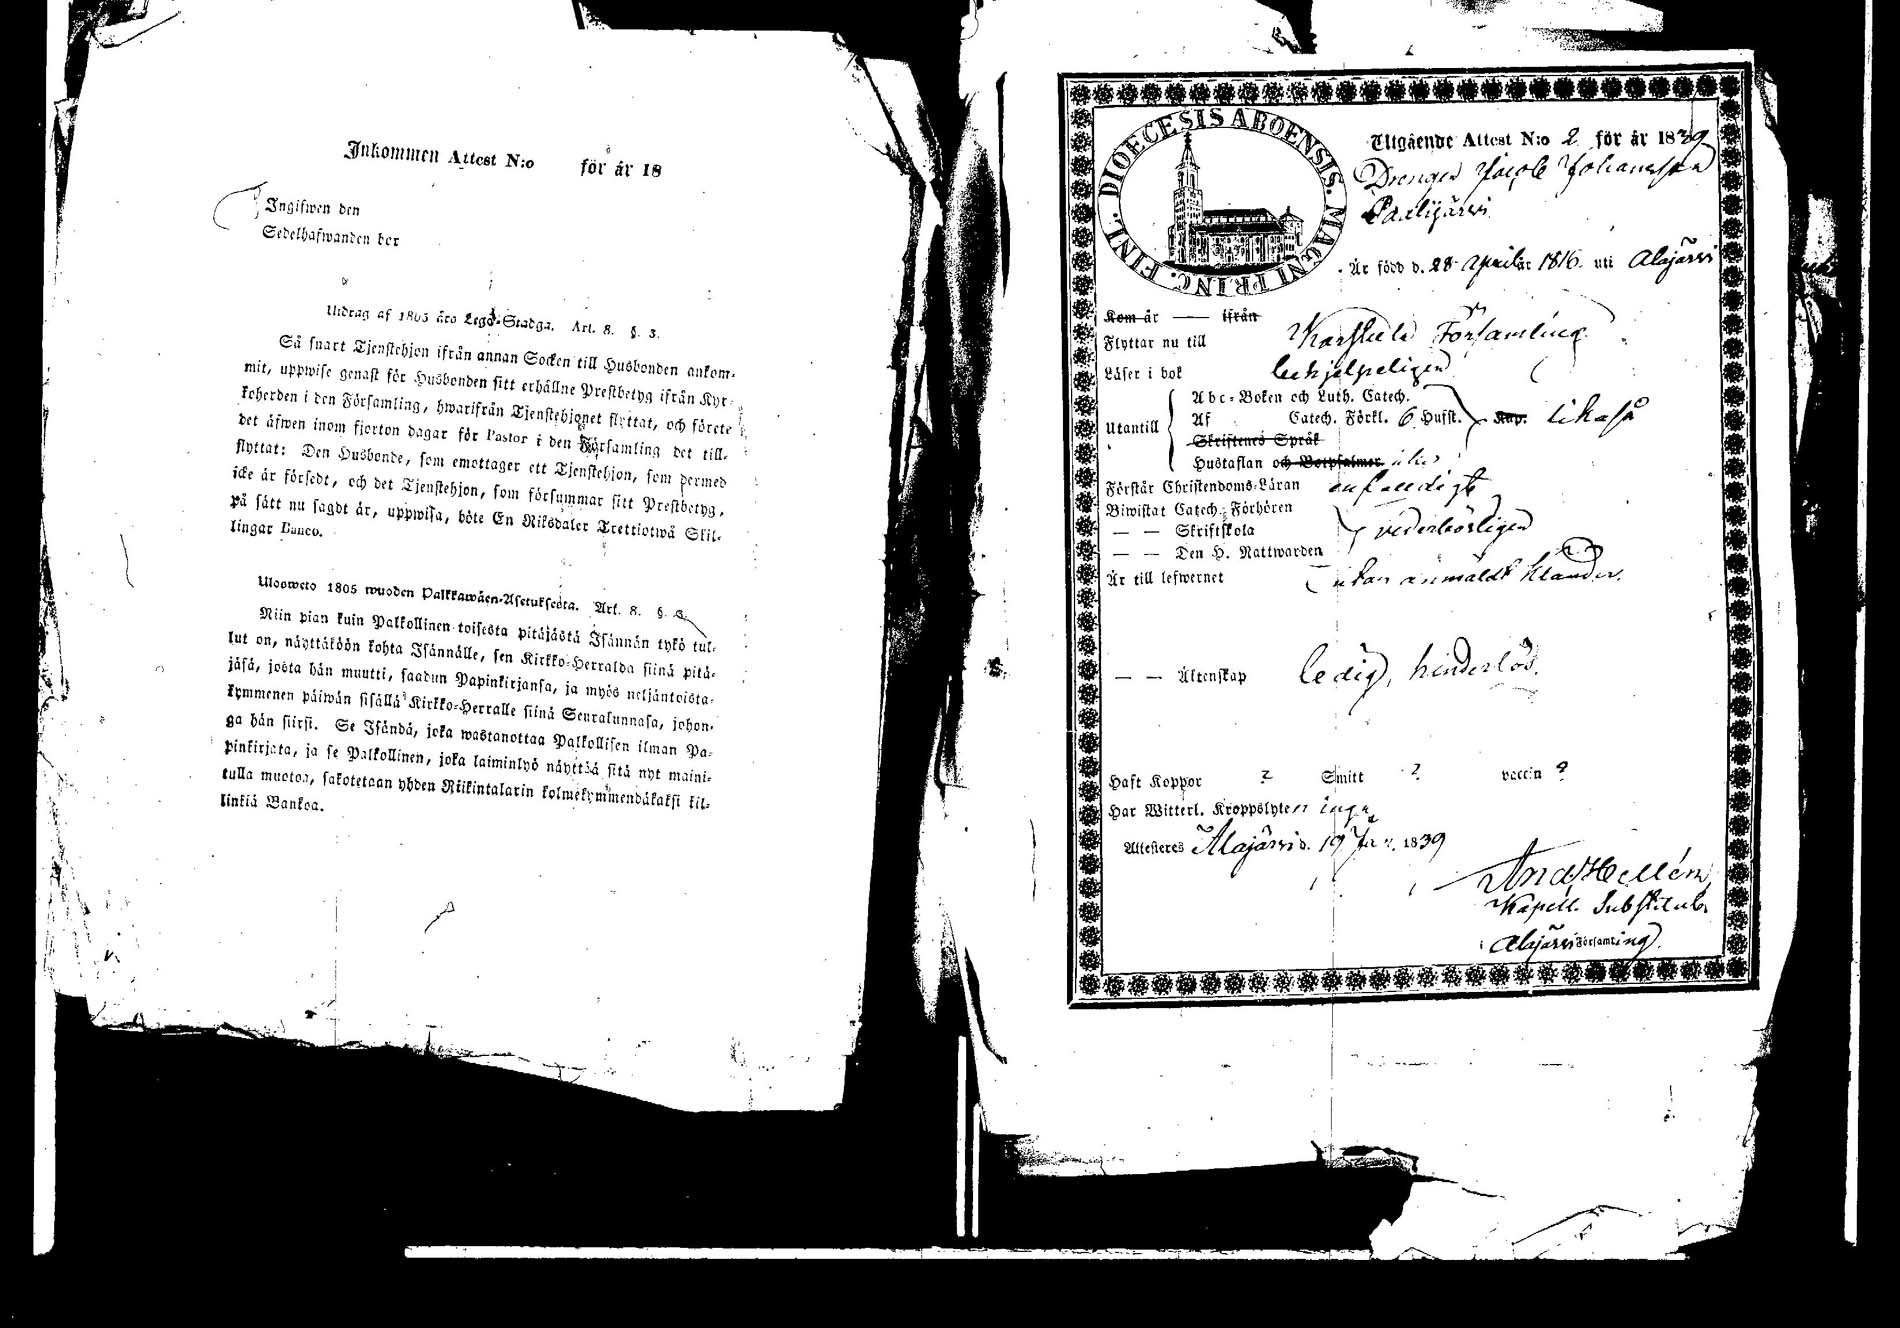 Inkommen Attest N:o för år 18
Ingifwen den
Sedelhafwanden ber
Utdrag af 1805 års Lego-Stadga. Art. 8. §. 3.
Så snart Tjenstehjon ifrån annan Socken till Husbonden ankom-
mit, uppwise genast för Husbonden sitt erhållne Prestbetyg ifrån Kyr-
koherden i den Församling, hwarifrån Tjenstehjonet flyttat, och förete
det äfwen inom fjorton dagar för Pastor i den Församling det till-
flyttat: Den Husbonde, som emottager ett Tjenstehjon, som dermed
icke är försedt, och det Tjenstehjon, som försummar sitt Prestbetyg,
på sätt nu sagdt är, uppwisa, böte En Riksdaler Trettiotwå Skil-
lingar Banco.
Ulosweto 1805 wuoden Palkkawäen-Asetuksesta. Art. 8. §. 3.
Niin pian kuin Palkollinen toisesta pitäjästä Isännän tykö tul-
lut on, näyttäköön kohta Isännälle, sen Kirkko-Herralda siinä pitä-
jäsä, josta hän muutti, saadun Papinkirjansa, ja myös neljäntoista-
kymmenen päiwän sisällä Kirkko-Herralle siinä Seurakunnasa, johon-
ga hän siirsi. Se Isändä, joka wastanottaa Palkollisen ilman Pa-
pinkirjata, ja se Palkollinen, joka laiminlyö näyttää sitä nyt maini-
tulla muotoa, sakotetaan yhden Riikintalarin kolmekymmendäkaksi kil-
linkiä Bankoa.
DIOECESIS ABOENSIS. MAGNI PRINC. FINL.
Utgående Attest N:o 2 för år 1839
Drengen Jacob Johansson
Är född d. 28 April år 1816. uti Alajärvi
Kom år — ifrån
Flyttar nu till Karstula Församling
Läser i bok behjelpeligen
Utantill
Abc-Boken och Luth. Catech.
Af Catech. Förkl. 6 Hufst. Kap. likaså
Skriftenes Språk
Hustaflan och Botpsalmer
Förstår Christendoms-Läran enfaldigt
Biwistat Catech. Förhören
— — Skriftskola vederbörligen
— — Den H. Nattwarden
Är till lefwernet utan anmäldt klander.
— — Äktenskap ledig, hinderlös.
Haft Koppor ? Smitt ? vaccin ?
Har Witterl. Kroppslyten inga
Attesteres Alajärvi d. 19 Jan. 1839
And Hellén
Kapell. Substitut
i Alajärvi Församling.